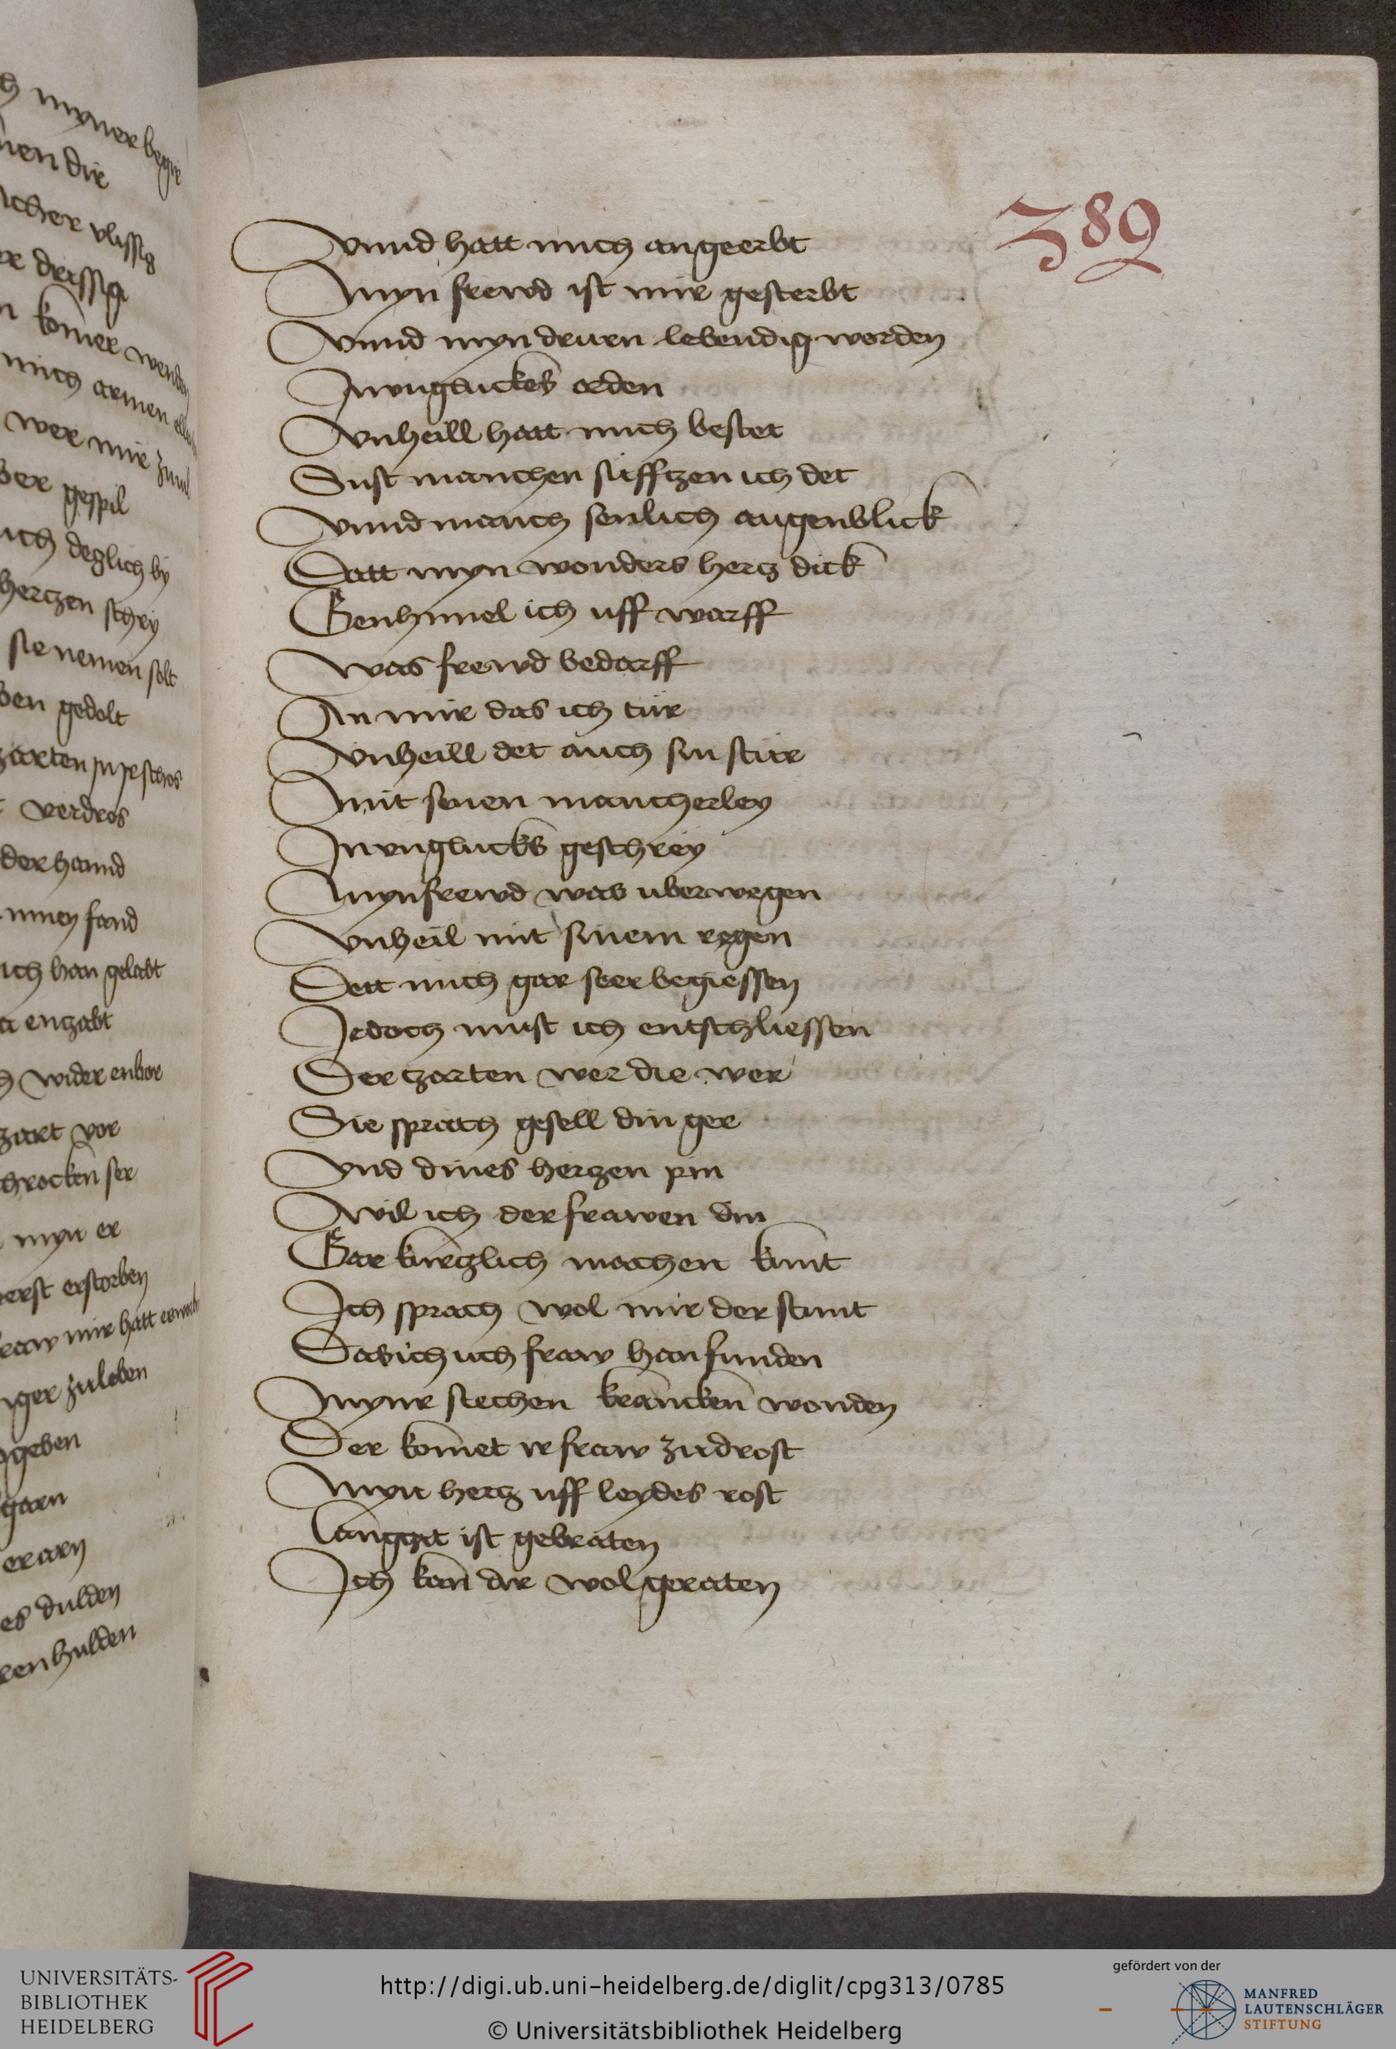 389
Vnnd hatt mich angeerbt
Myn frewd ist mir gesterbt
Vnnd myn druren lebendig worden
In vngluckes orden
Vnheill hatt mich bestet
Sust manchen suffczen ich det
Vnnd manch senlich augenblick
Datt myn wonders hercz dick
Gen hymel ich uff warff
Was frewd bedarff
An mir das ich tür
Vnheill det auch sin stür
Mit senen mancherley
In vnglucks geschrey
Myn frewd was uberwegen
Vnheil mit sinem regen
Dett mich gar seer begiessen
Jedoch must ich entschliessen
Der zarten wer die wer
Sie sprach gesell din ger
Vnd dines herczen pin
Wil ich der frawen din
Gar kurczlich machen kunt
Ich sprach wol mir der stunt
Das ich uch fraw han funden
Myner siechen krancken wonden
Der komet ir fraw zu drost
Myn hercz uff leydes rost
Langzit ist gebraten
Ich kan dir wol geraten
myner begir
dir
vlissig
komer wenden
mich armen
wer mir
gespil
deglich by
herczen schry
sie nemen solt
gedolt
zarten
verdros
der hannd
fand
ich han gelabt
wider enbor
zart vor
ser
myn er
erst erstorben
mir hatt
zu leben
geben
garn
es dulden
hulden
UNIVERSITÄTS-
BIBLIOTHEK
HEIDELBERG
http://digi.ub.uni-heidelberg.de/diglit/cpg313/0785
© Universitätsbibliothek Heidelberg
gefördert von der
MANFRED
LAUTENSCHLÄGER
STIFTUNG